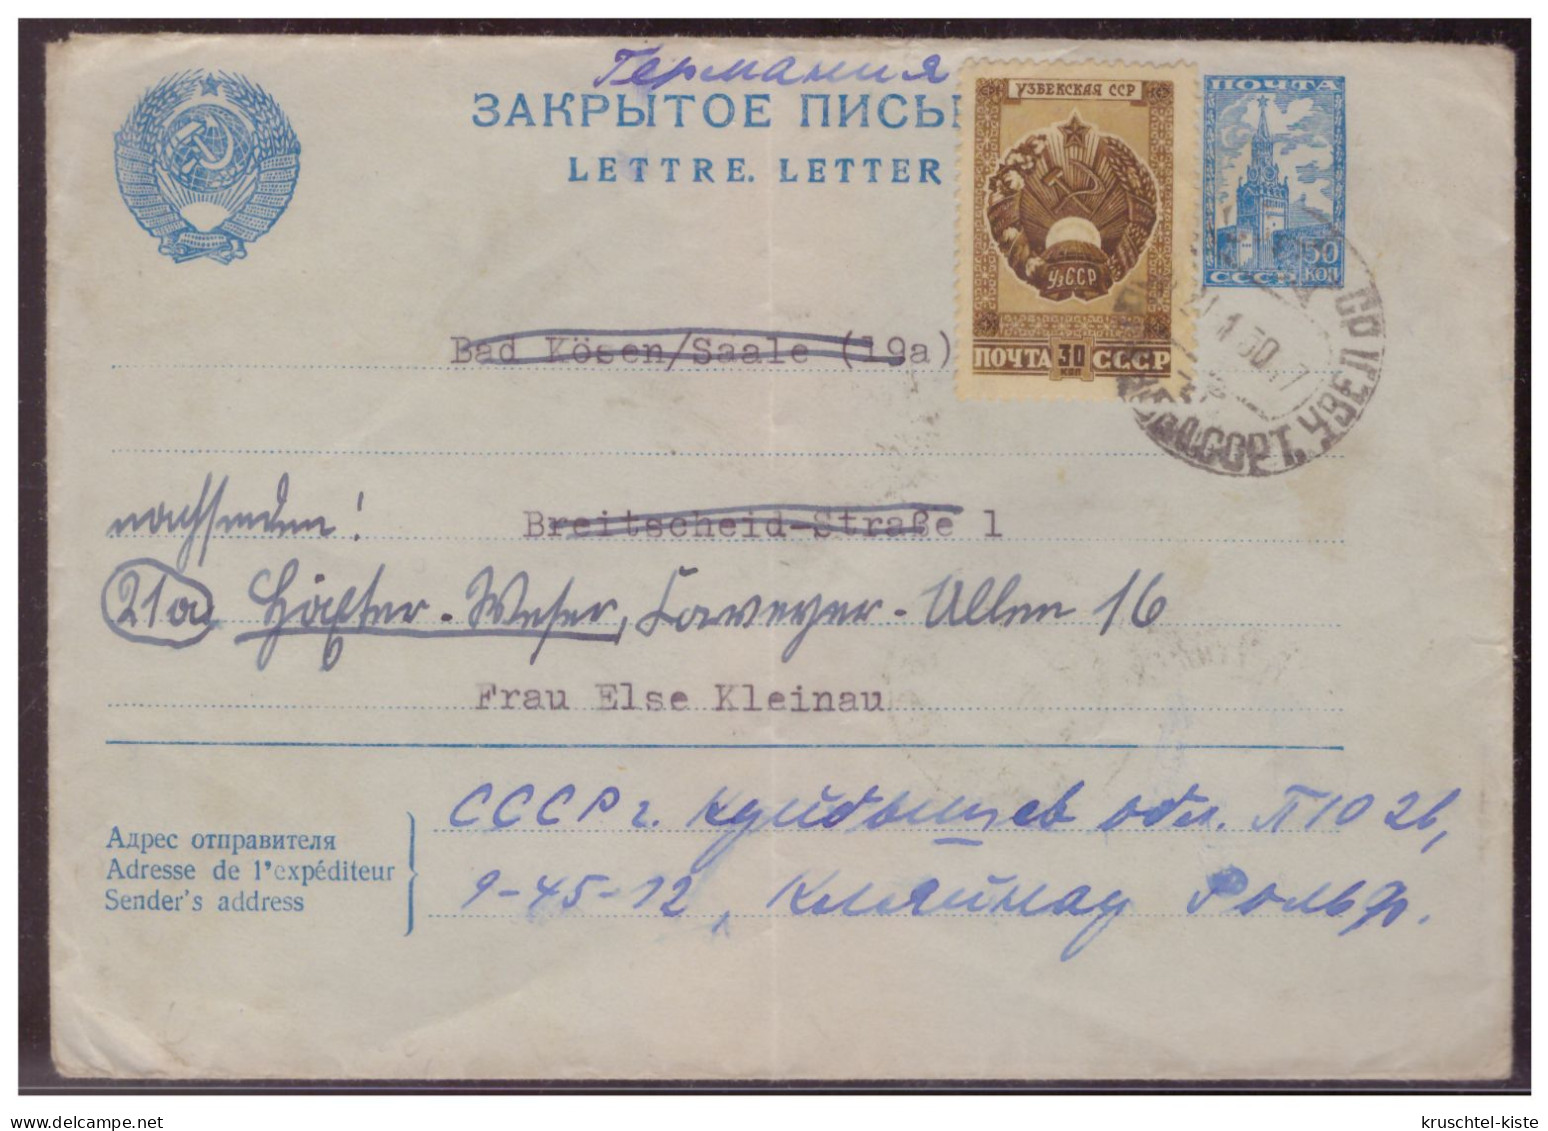 Германия
ЗАКРЫТОЕ ПИСЬ
LETTRE. LETTER
УЗБЕКСКАЯ ССР
УзССР
ПОЧТА 30 КОП СССР
ПОЧТА
50 КОП
СССР
Bad Kösen/Saale (19a)
nachsenden!
Breitscheid-Straße 1
21a Höxter-Weser, 16
Frau Else Kleinau
СССР г. Куйбышев обл. П/О 26,
Адрес отправителя
Adresse de l'expéditeur
Sender's address
9-45-12, Кляйнау Рольф.
kruschtel-kiste
delcampe.net